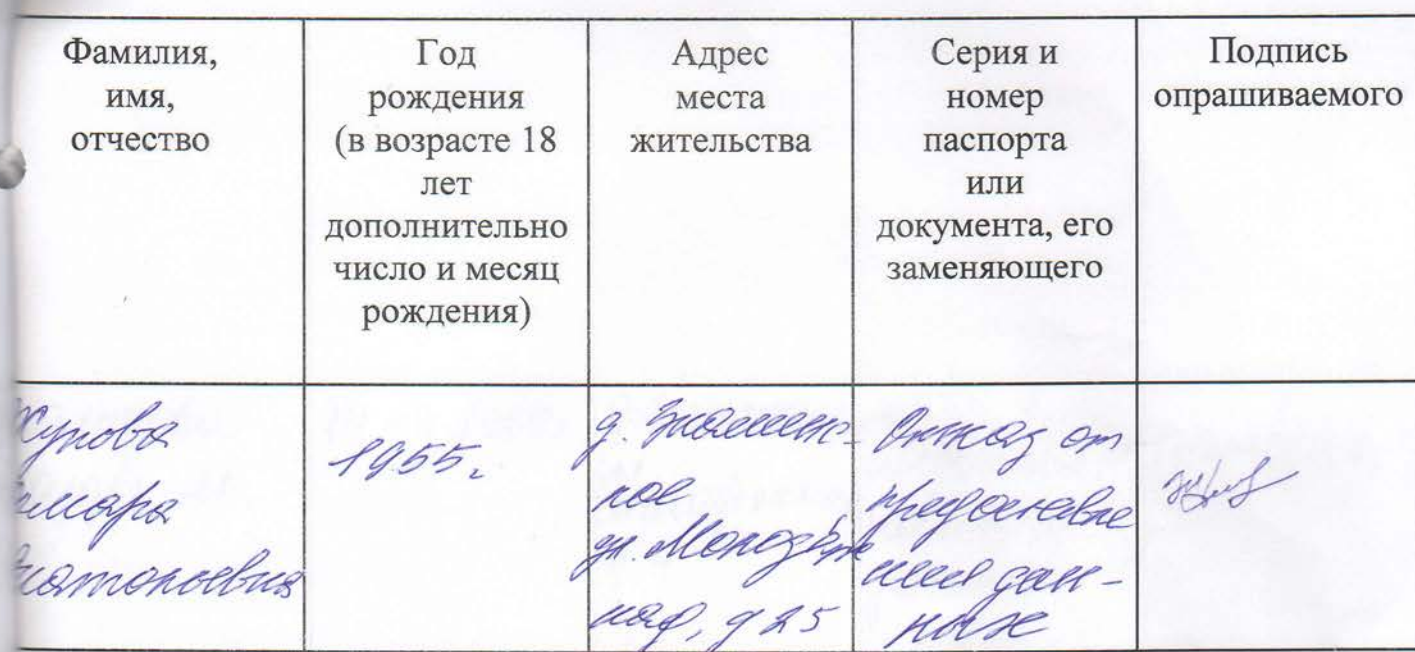 Фамилия,
имя,
отчество
Год
рождения
(в возрасте 18
лет
дополнительно
число и месяц
рождения)
Адрес
места
жительства
Серия и
номер
паспорта
или
документа, его
заменяющего
Подпись
опрашиваемого
1955г
д. Знаменс-
кое
ул. Молодёж
ная, д 25
Отказ от
предоставле
ния дан-
ных